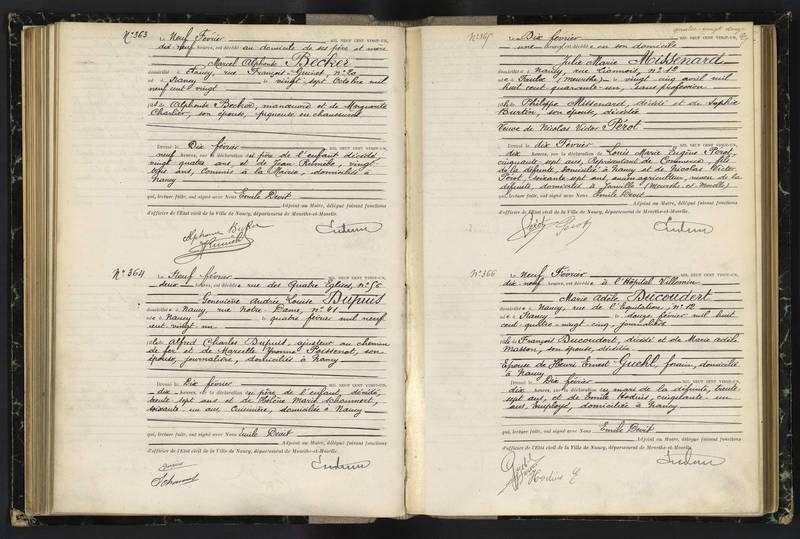 N° 363
Le Neuf Février MIL NEUF CENT VINGT-UN,
dix neuf heures, est décédé au domicile de ses père et mère
Marcel Alphonse Becker
domicilié à Nancy, rue François-Guinet n° 20
né à Nancy le vingt sept Octobre mil
neuf cent vingt
fils de Alphonse Becker, manœuvre et de Marguerite
Chartier, son épouse, piqueuse en chaussures
Dressé le Dix février MIL NEUF CENT VINGT-UN,
neuf heures, sur la déclaration du père de l'enfant décédé
vingt quatre ans et de Jean vingt
ans, Commis à la Mairie, domiciliés à
Nancy
qui, lecture faite, ont signé avec Nous Emile Devit
Adjoint au Maire, délégué faisant fonctions
d'officier de l'Etat civil de la Ville de Nancy, département de Meurthe-et-Moselle.
Alphonse Becker
N° 364
Le Neuf février MIL NEUF CENT VINGT-UN,
deux heures, est décédée rue des Quatre Eglises, n° 55
Geneviève Andrée Louise Dupuis
domiciliée à Nancy, rue Notre-Dame, n° 41
née à Nancy le quatre février mil neuf
cent vingt un
fille de Alfred Charles Dupuis, ajusteur au chemin
de fer et de Marcelle Yvonne Poissenot, son
épouse, journalière, domiciliés à Nancy
Dressé le Dix février MIL NEUF CENT VINGT-UN,
dix heures, sur la déclaration du père de l'enfant, décédée,
trente sept ans et de Hélène Marie
soixante un ans, Cuisinière, domiciliés à Nancy
qui, lecture faite, ont signé avec Nous Emile Devit
Adjoint au Maire, délégué faisant fonctions
d'officier de l'Etat civil de la Ville de Nancy, département de Meurthe-et-Moselle.
N° 365
quatre-vingt douze
Le Dix février MIL NEUF CENT VINGT-UN,
une heures, est décédée en son domicile
Julie Marie Missenard
domiciliée à Nancy, rue n° 12
née à (Meurthe) le vingt cinq avril mil
huit cent quarante-un, sans profession
fille de Philippe Missenard, décédé et de Sophie
Burtin, son épouse, décédée
Veuve de Nicolas Victor Pérot
Dressé le dix Février MIL NEUF CENT VINGT-UN,
dix heures, sur la déclaration de Louis Marie Eugène Pérot,
cinquante sept ans, Représentant de Commerce, fils
de la défunte, domicilié à Nancy et de Nicolas Victor
Pérot, soixante sept ans, agriculteur, neveu de la
défunte, domicilié à Jarville (Meurthe et Moselle)
qui, lecture faite, ont signé avec Nous Emile Devit
Adjoint au Maire, délégué faisant fonctions
d'officier de l'Etat civil de la Ville de Nancy, département de Meurthe-et-Moselle.
Pérot Pérot
N° 366
Le Neuf Février MIL NEUF CENT VINGT-UN,
dix neuf heures, est décédée à l'Hôpital Villemin
Marie Adèle Bucoudert
domiciliée à Nancy, rue de l'Equitation, n° 12
née à Nancy le douze février mil huit
cent quatre-vingt cinq, journalière
fille de François Bucoudert, décédé et de Marie Adèle
Masson, son épouse, décédée
Epouse de Henri Ernest Guehl, forain, domicilié
à Nancy
Dressé le Dix février MIL NEUF CENT VINGT-UN,
dix heures, sur la déclaration du mari de la défunte, trente
sept ans, et de Emile Hodius, cinquante-un
ans, Employé, domiciliés à Nancy
qui, lecture faite, ont signé avec Nous Emile Devit
Adjoint au Maire, délégué faisant fonctions
d'officier de l'Etat civil de la Ville de Nancy, département de Meurthe-et-Moselle.
Guehl
Hodius E